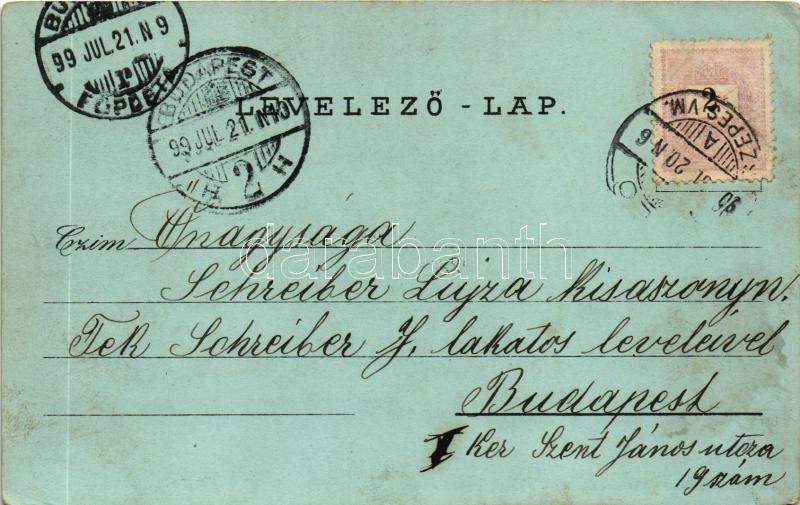 BUDAPEST
99 JUL. 21. N 9
FŐPOSTA
BUDAPEST
99 JUL. 21. N 10
H 2 H
LEVELEZŐ - LAP.
2
SZEPES VM.
A
20 N 6
Czim Őnagysága
Schreiber Lujza kisaszonyn.
Tek Schreiber J. lakatos leveleivel
Budapest
I Ker Szent János utcza
19 szám
darabanth